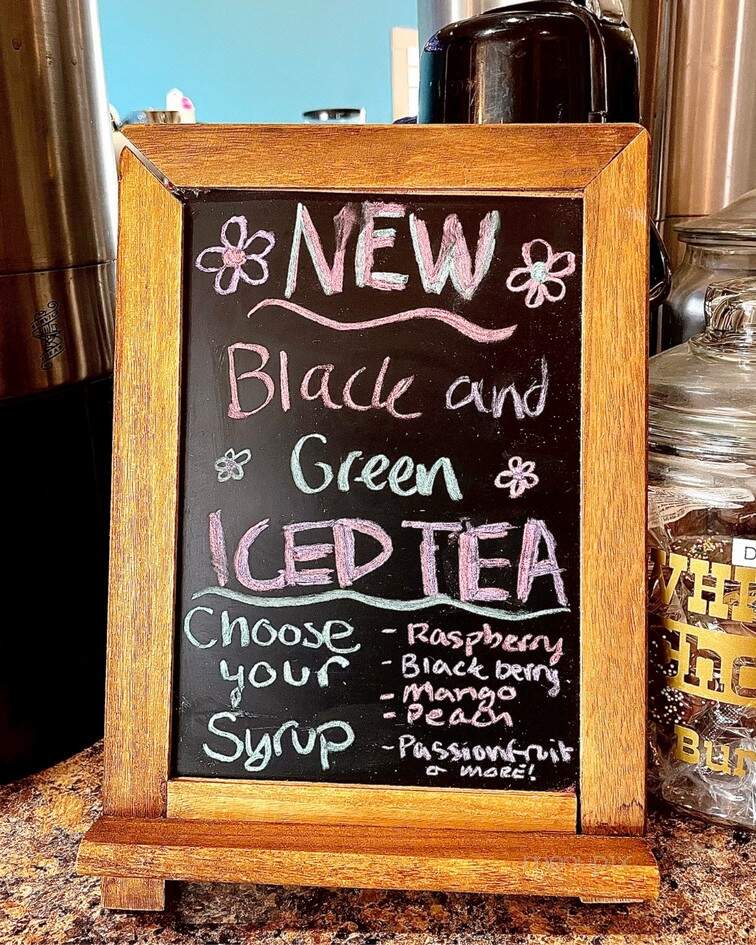 NEW
Black and
Green
ICED TEA
Choose
your
Syrup
- Raspberry
- Blackberry
- Mango
- Peach
- Passionfruit
& MORE!
menupix